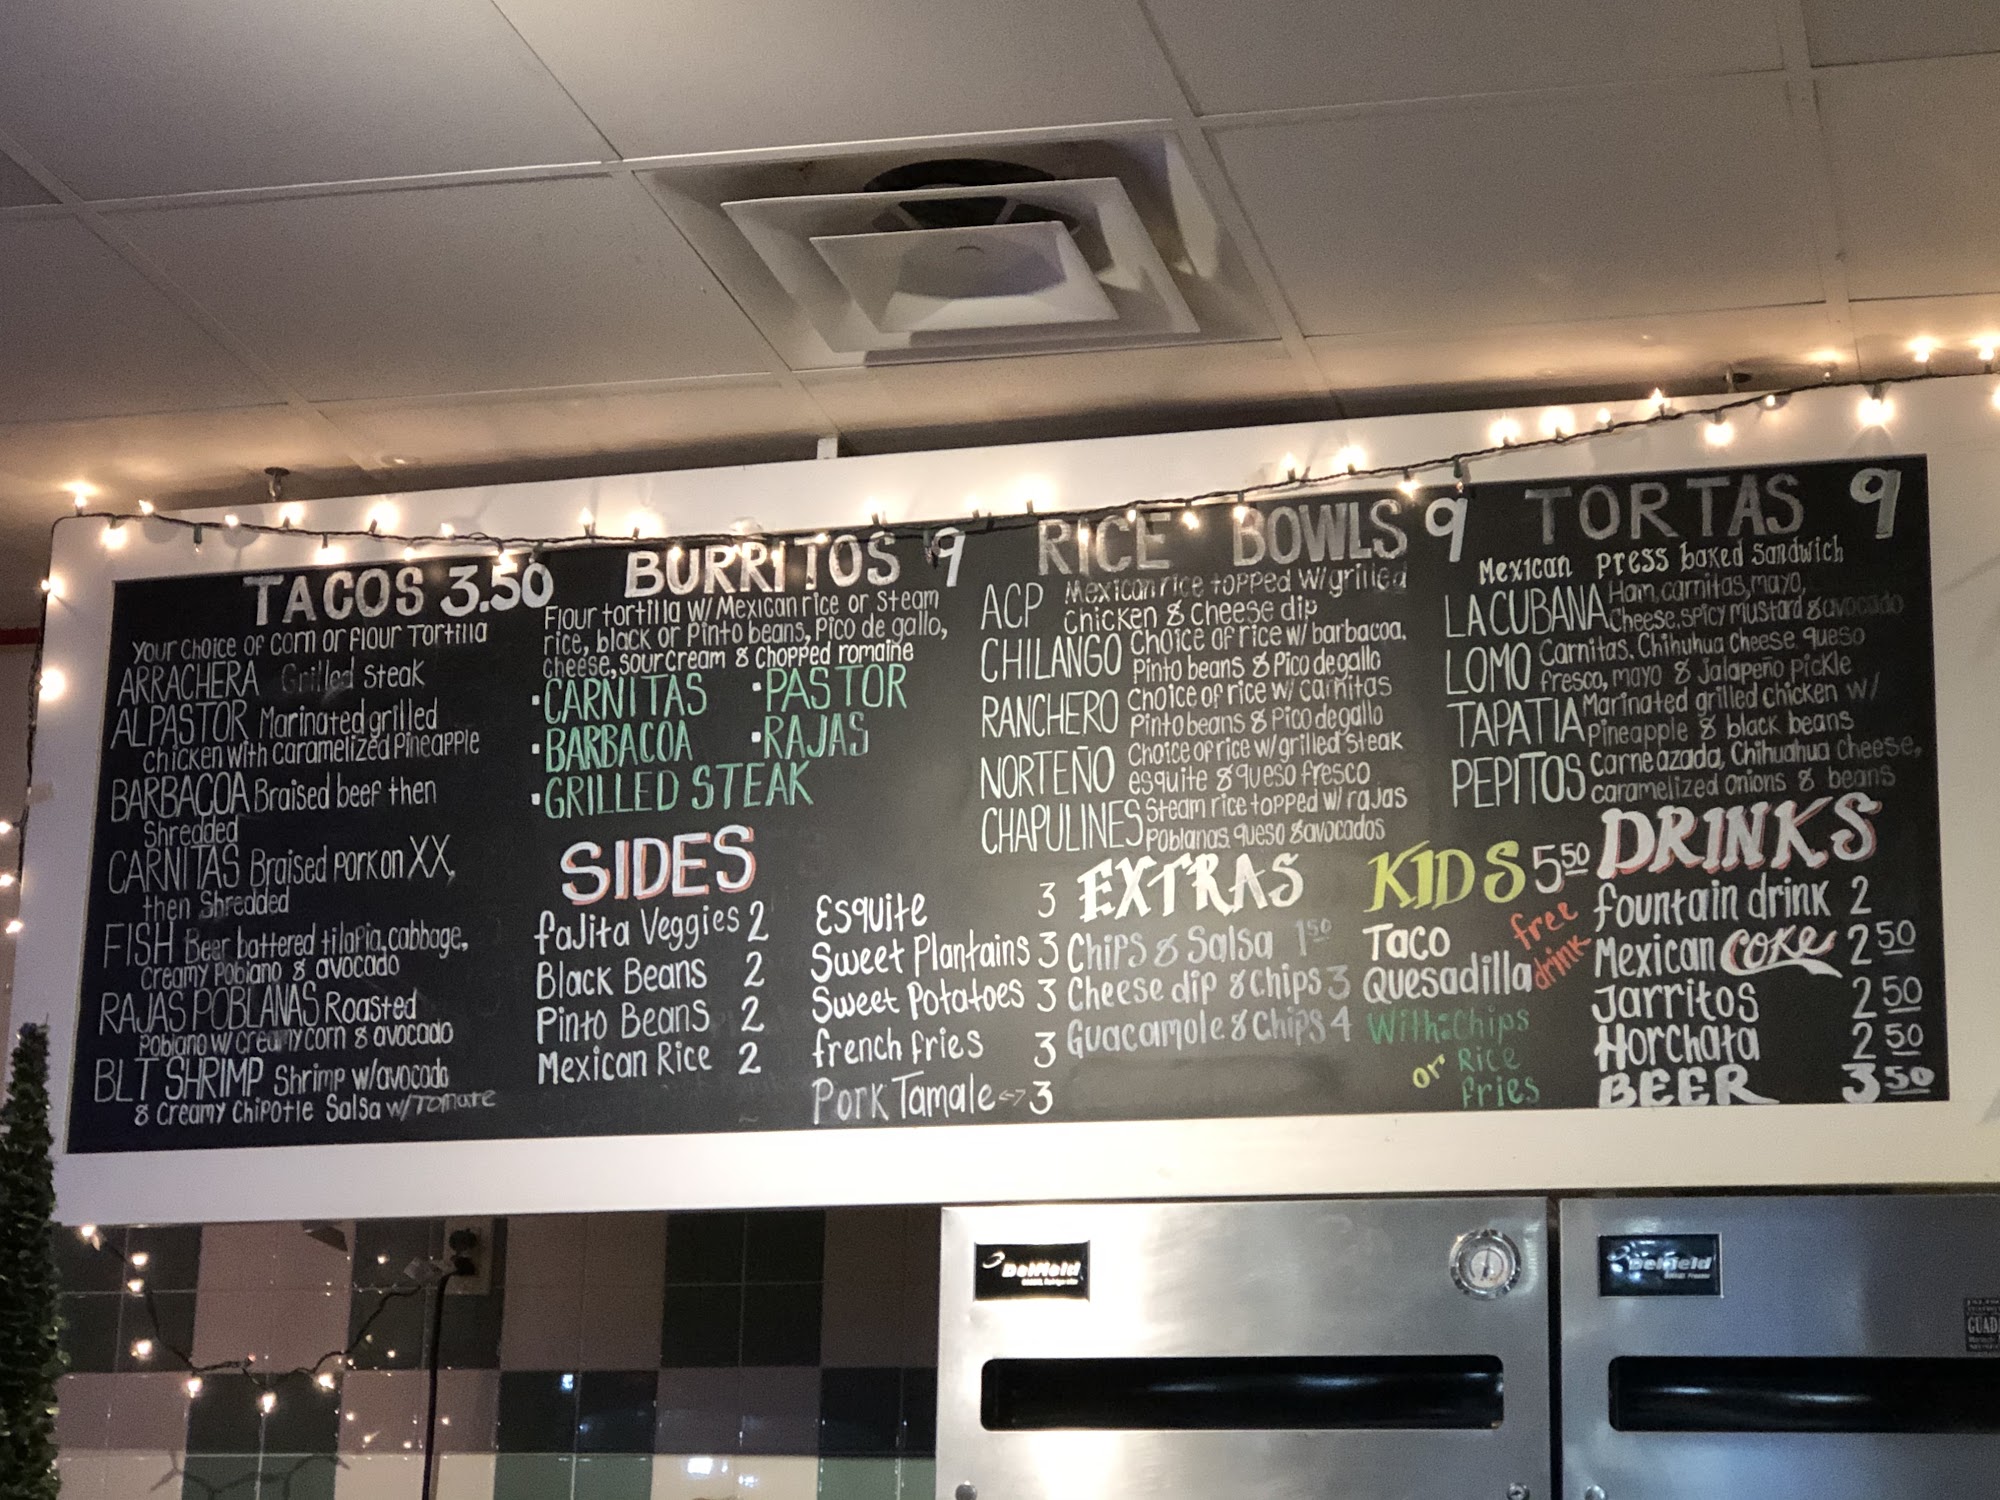 TACOS 3.50
Your choice of corn or flour Tortilla
ARRACHERA Grilled steak
AL PASTOR Marinated grilled
chicken with caramelized Pineapple
BARBACOA Braised beef then
Shredded
CARNITAS Braised pork on XX,
then Shredded
FISH Beer battered tilapia, cabbage,
Creamy Poblano & avocado
RAJAS POBLANAS Roasted
Poblano w/creamy corn & avocado
BLT SHRIMP Shrimp w/avocado
& Creamy Chipotle Salsa w/Tomate
BURRITOS 9
Flour tortilla w/ Mexican rice or steam
rice, black or Pinto beans, Pico de gallo,
cheese, sour cream & chopped romaine
·CARNITAS ·PASTOR
·BARBACOA ·RAJAS
·GRILLED STEAK
SIDES
fajita Veggies 2
Black Beans 2
Pinto Beans 2
Mexican Rice 2
Esquite 3
Sweet Plantains 3
Sweet Potatoes 3
french fries 3
Pork Tamale 3
RICE BOWLS 9
ACP Mexican rice topped w/grilled
chicken & cheese dip
CHILANGO Choice of rice w/ barbacoa,
Pinto beans & Pico de gallo
RANCHERO Choice of rice w/ carnitas
Pinto beans & Pico de gallo
NORTEÑO Choice of rice w/grilled steak
esquite & queso fresco
CHAPULINES Steam rice topped w/ rajas
Poblanas, queso & avocados
EXTRAS
Chips & Salsa 1 50
Cheese dip & chips 3
Guacamole & Chips 4
TORTAS 9
Mexican press baked sandwich
LA CUBANA Ham, carnitas, mayo,
Cheese, spicy mustard & avocado
LOMO Carnitas, Chihuhua Cheese, queso
fresco, mayo & Jalapeño pickle
TAPATIA Marinated grilled chicken w/
Pineapple & black beans
PEPITOS Carne azada, Chihuahua cheese,
caramelized onions & beans
KIDS 5 50
free
drink
Taco
Quesadilla
With: Chips
or Rice
fries
DRINKS
fountain drink 2
Mexican Coke 2 50
Jarritos 2 50
Horchata 2 50
BEER 3 50
Delfield
Delfield
GUAD